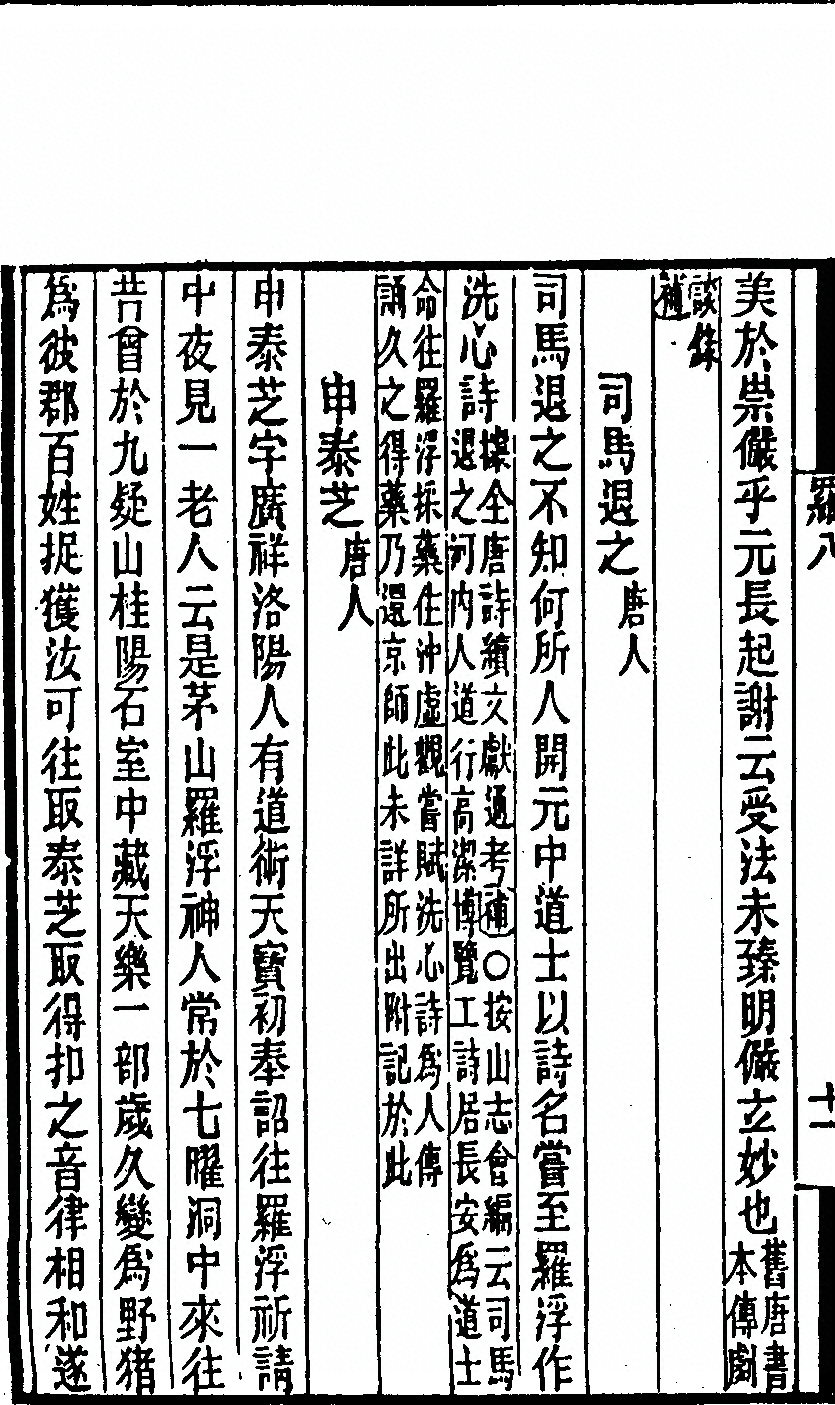 羅八
十一
美於崇儼乎元長起謝云受法未臻明儼立妙也舊唐書
本傳劇
談錄
補
司馬退之唐人
司馬退之不知何所人開元中道士以詩名嘗至羅浮作
洗心詩據全唐詩續文獻通考補○按山志會編云司馬
退之河內人道行高潔博覽工詩居長安爲道士
命往羅浮採藥住沖虛觀嘗賦洗心詩爲人傳
誦久之得藥乃還京師此未詳所出附記於此
申泰芝唐人
申泰芝字廣祥洛陽人有道術天寶初奉詔往羅浮祈請
中夜見一老人云是茅山羅浮神人常於七曜洞中來往
昔曾於九疑山桂陽石室中藏天樂一部歲久變爲野猪
爲彼郡百姓捉獲汝可往取泰芝取得扣之音律相和遂